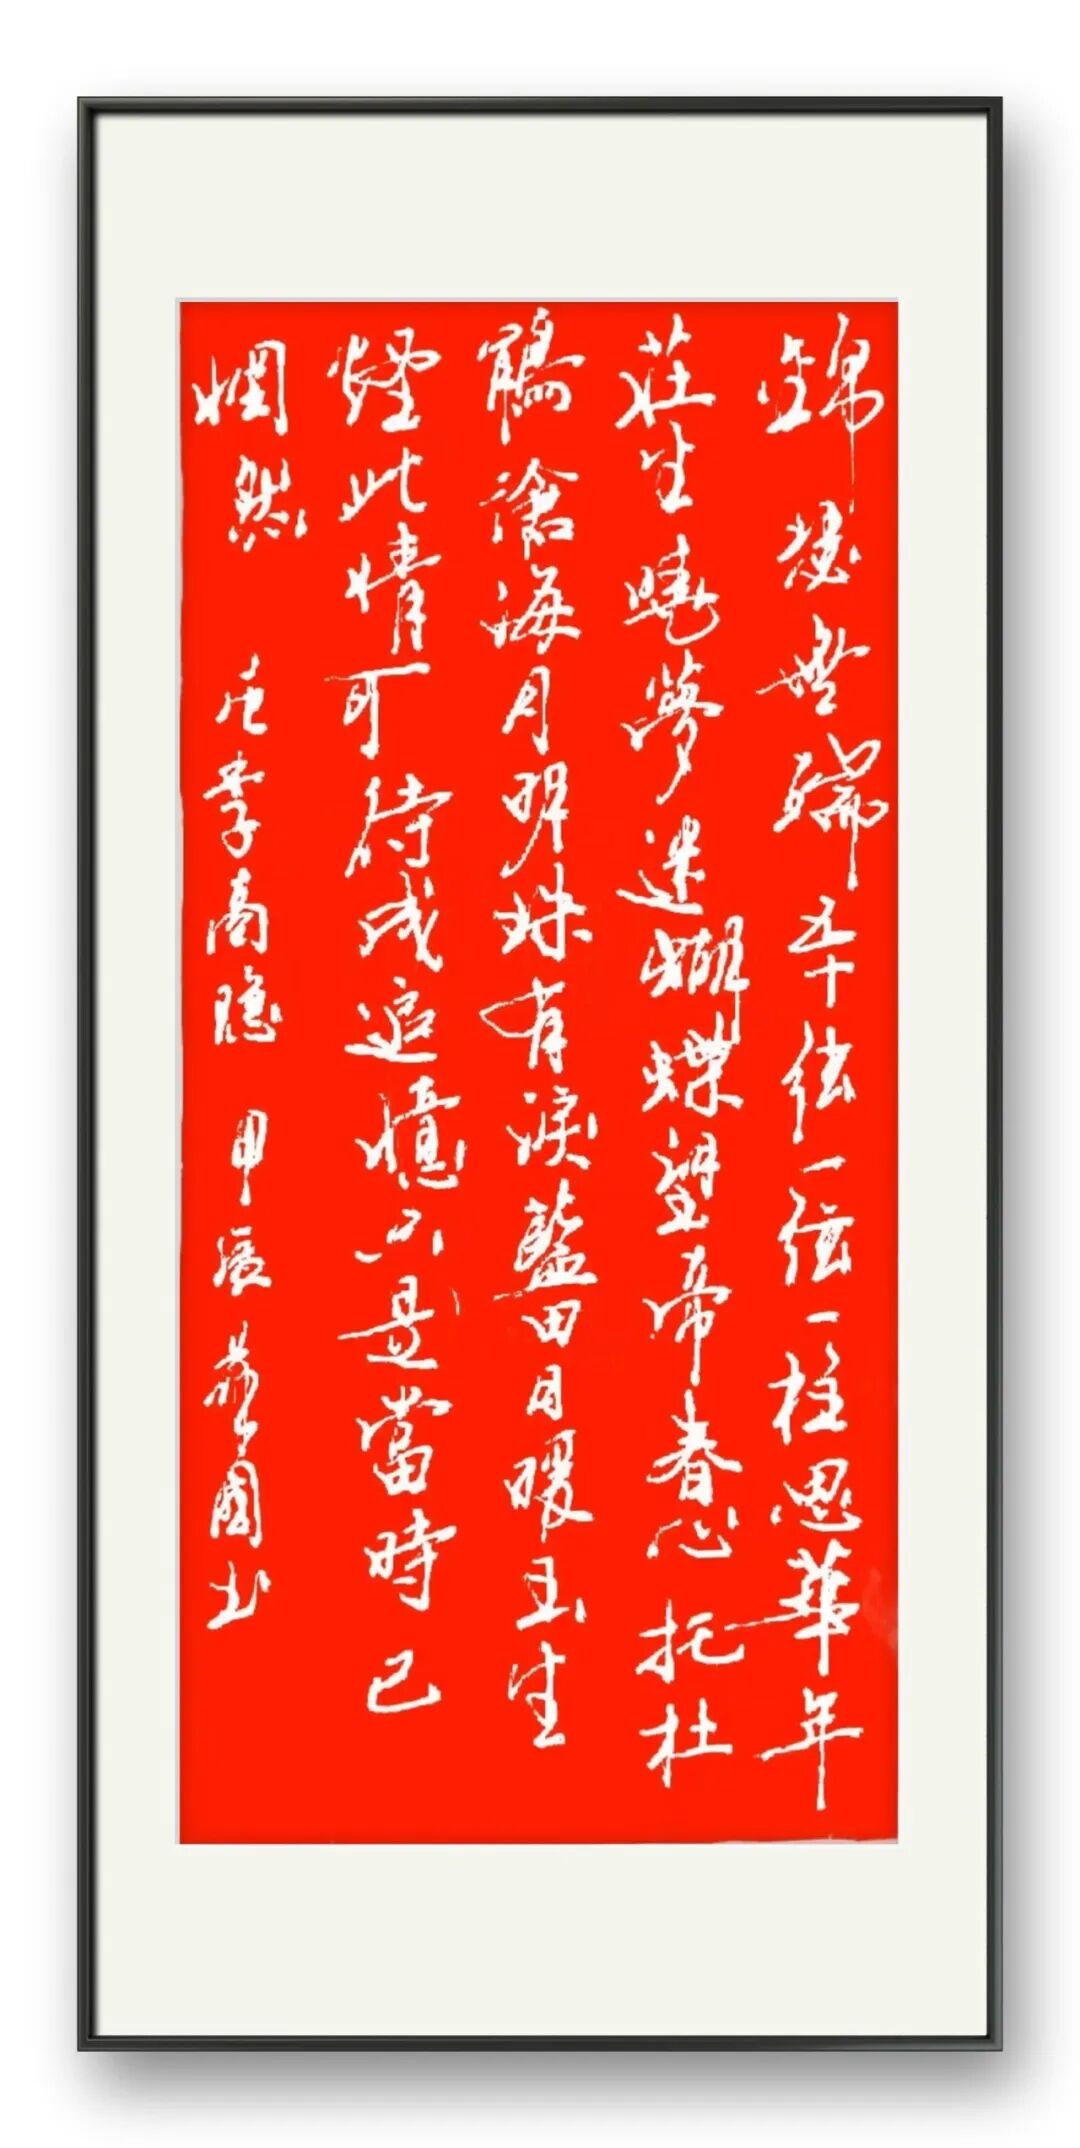 錦瑟無端五十弦一弦一柱思華年
莊生曉夢迷蝴蝶望帝春心托杜
鵑滄海月明珠有淚藍田日暖玉生
煙此情可待成追憶只是當時已
惘然 唐李商隐 甲辰 國书